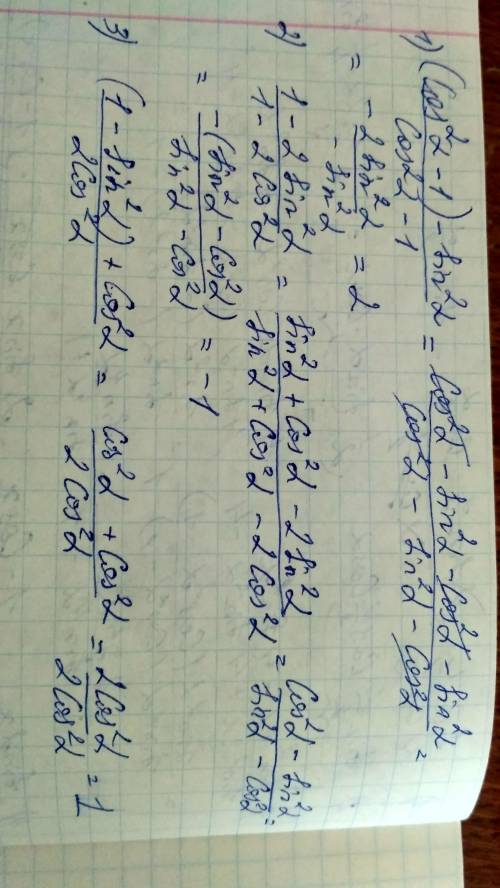 1) (Cos²α - 1) - sin²α / Cos²α - 1 = Cos²α - sin²α - Cos²α - sin²α / Cos²α - sin²α - Cos²α =
= - 2sin²α / - sin²α = 2
2) 1 - 2sin²α / 1 - 2Cos²α = sin²α + Cos²α - 2sin²α / sin²α + Cos²α - 2Cos²α = Cos²α - sin²α / sin²α - Cos²α =
= -(sin²α - Cos²α) / sin²α - Cos²α = -1
3) (1 - sin²α) + Cos²α / 2Cos²α = Cos²α + Cos²α / 2Cos²α = 2Cos²α / 2Cos²α = 1